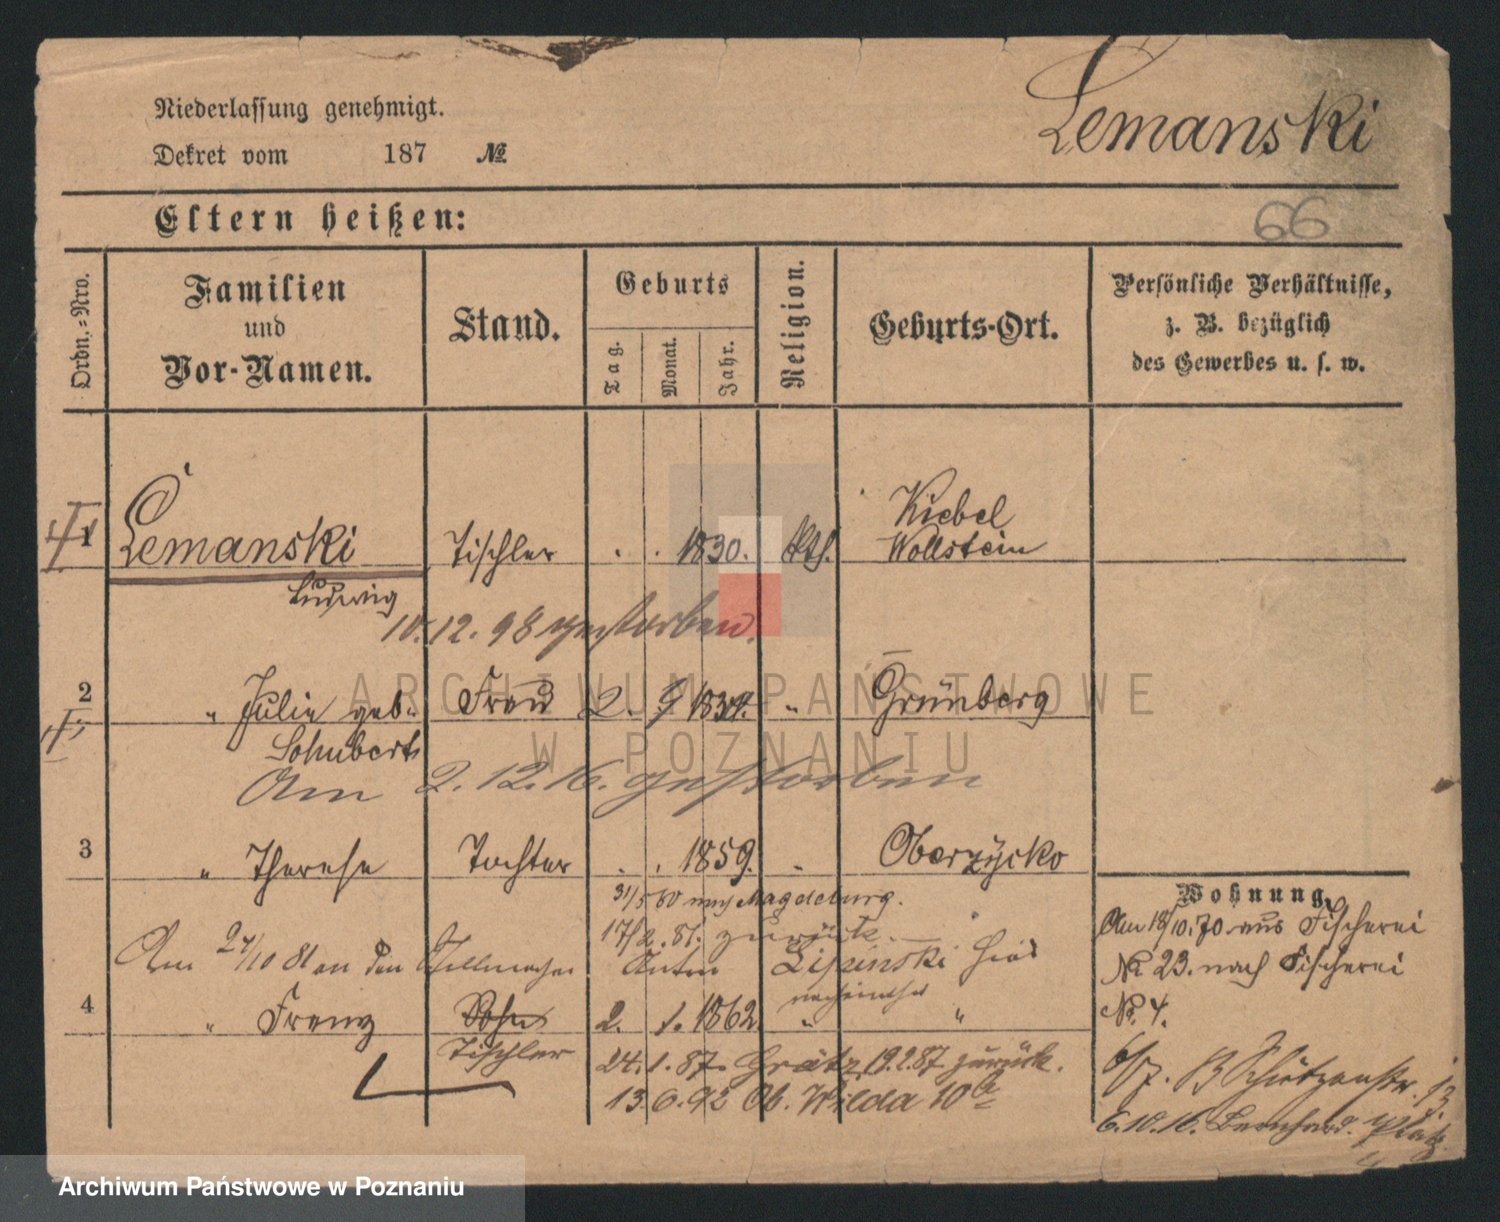 Niederlassung genehmigt.
Dekret vom 187 №
Lemanski
Eltern heißen:
66
Ordn.-Nro.
Familien und Vor-Namen.
Stand.
Geburts
Tag. Monat. Jahr.
Religion.
Geburts-Ort.
Persönliche Verhältnisse, z. B. bezüglich des Gewerbes u. s. w.
Kiebel
1 Lemanski Tischler . . 1830. kth. Wollstein
Ludwig
10.12.98 gestorben.
2 " Julie geb. Frau 2. 9 1834. " Grünberg
Schubert
Am 2.12.16. gestorben
3 " Therese Tochter . . 1859. " Oberzycko
31/5 80 nach Magdeburg.
17/2. 81. zurück.
Am 27/10 81 an den Stellmacher Anton Lipinski hier
verheirathet
4 " Franz Sohn 2. 1. 1862. " "
Tischler 24.1.87. Grätz, 19.2.87 zurück.
13.6.92 Ob. Wilda 10b
Wohnung.
Am 18/10.70 aus Fischerei
№ 23. nach Fischerei
№ 4.
6/7. Schützenstr. 13
6.10.16. Bernhard. Platz
ARCHIWUM PAŃSTWOWE
W POZNANIU
Archiwum Państwowe w Poznaniu